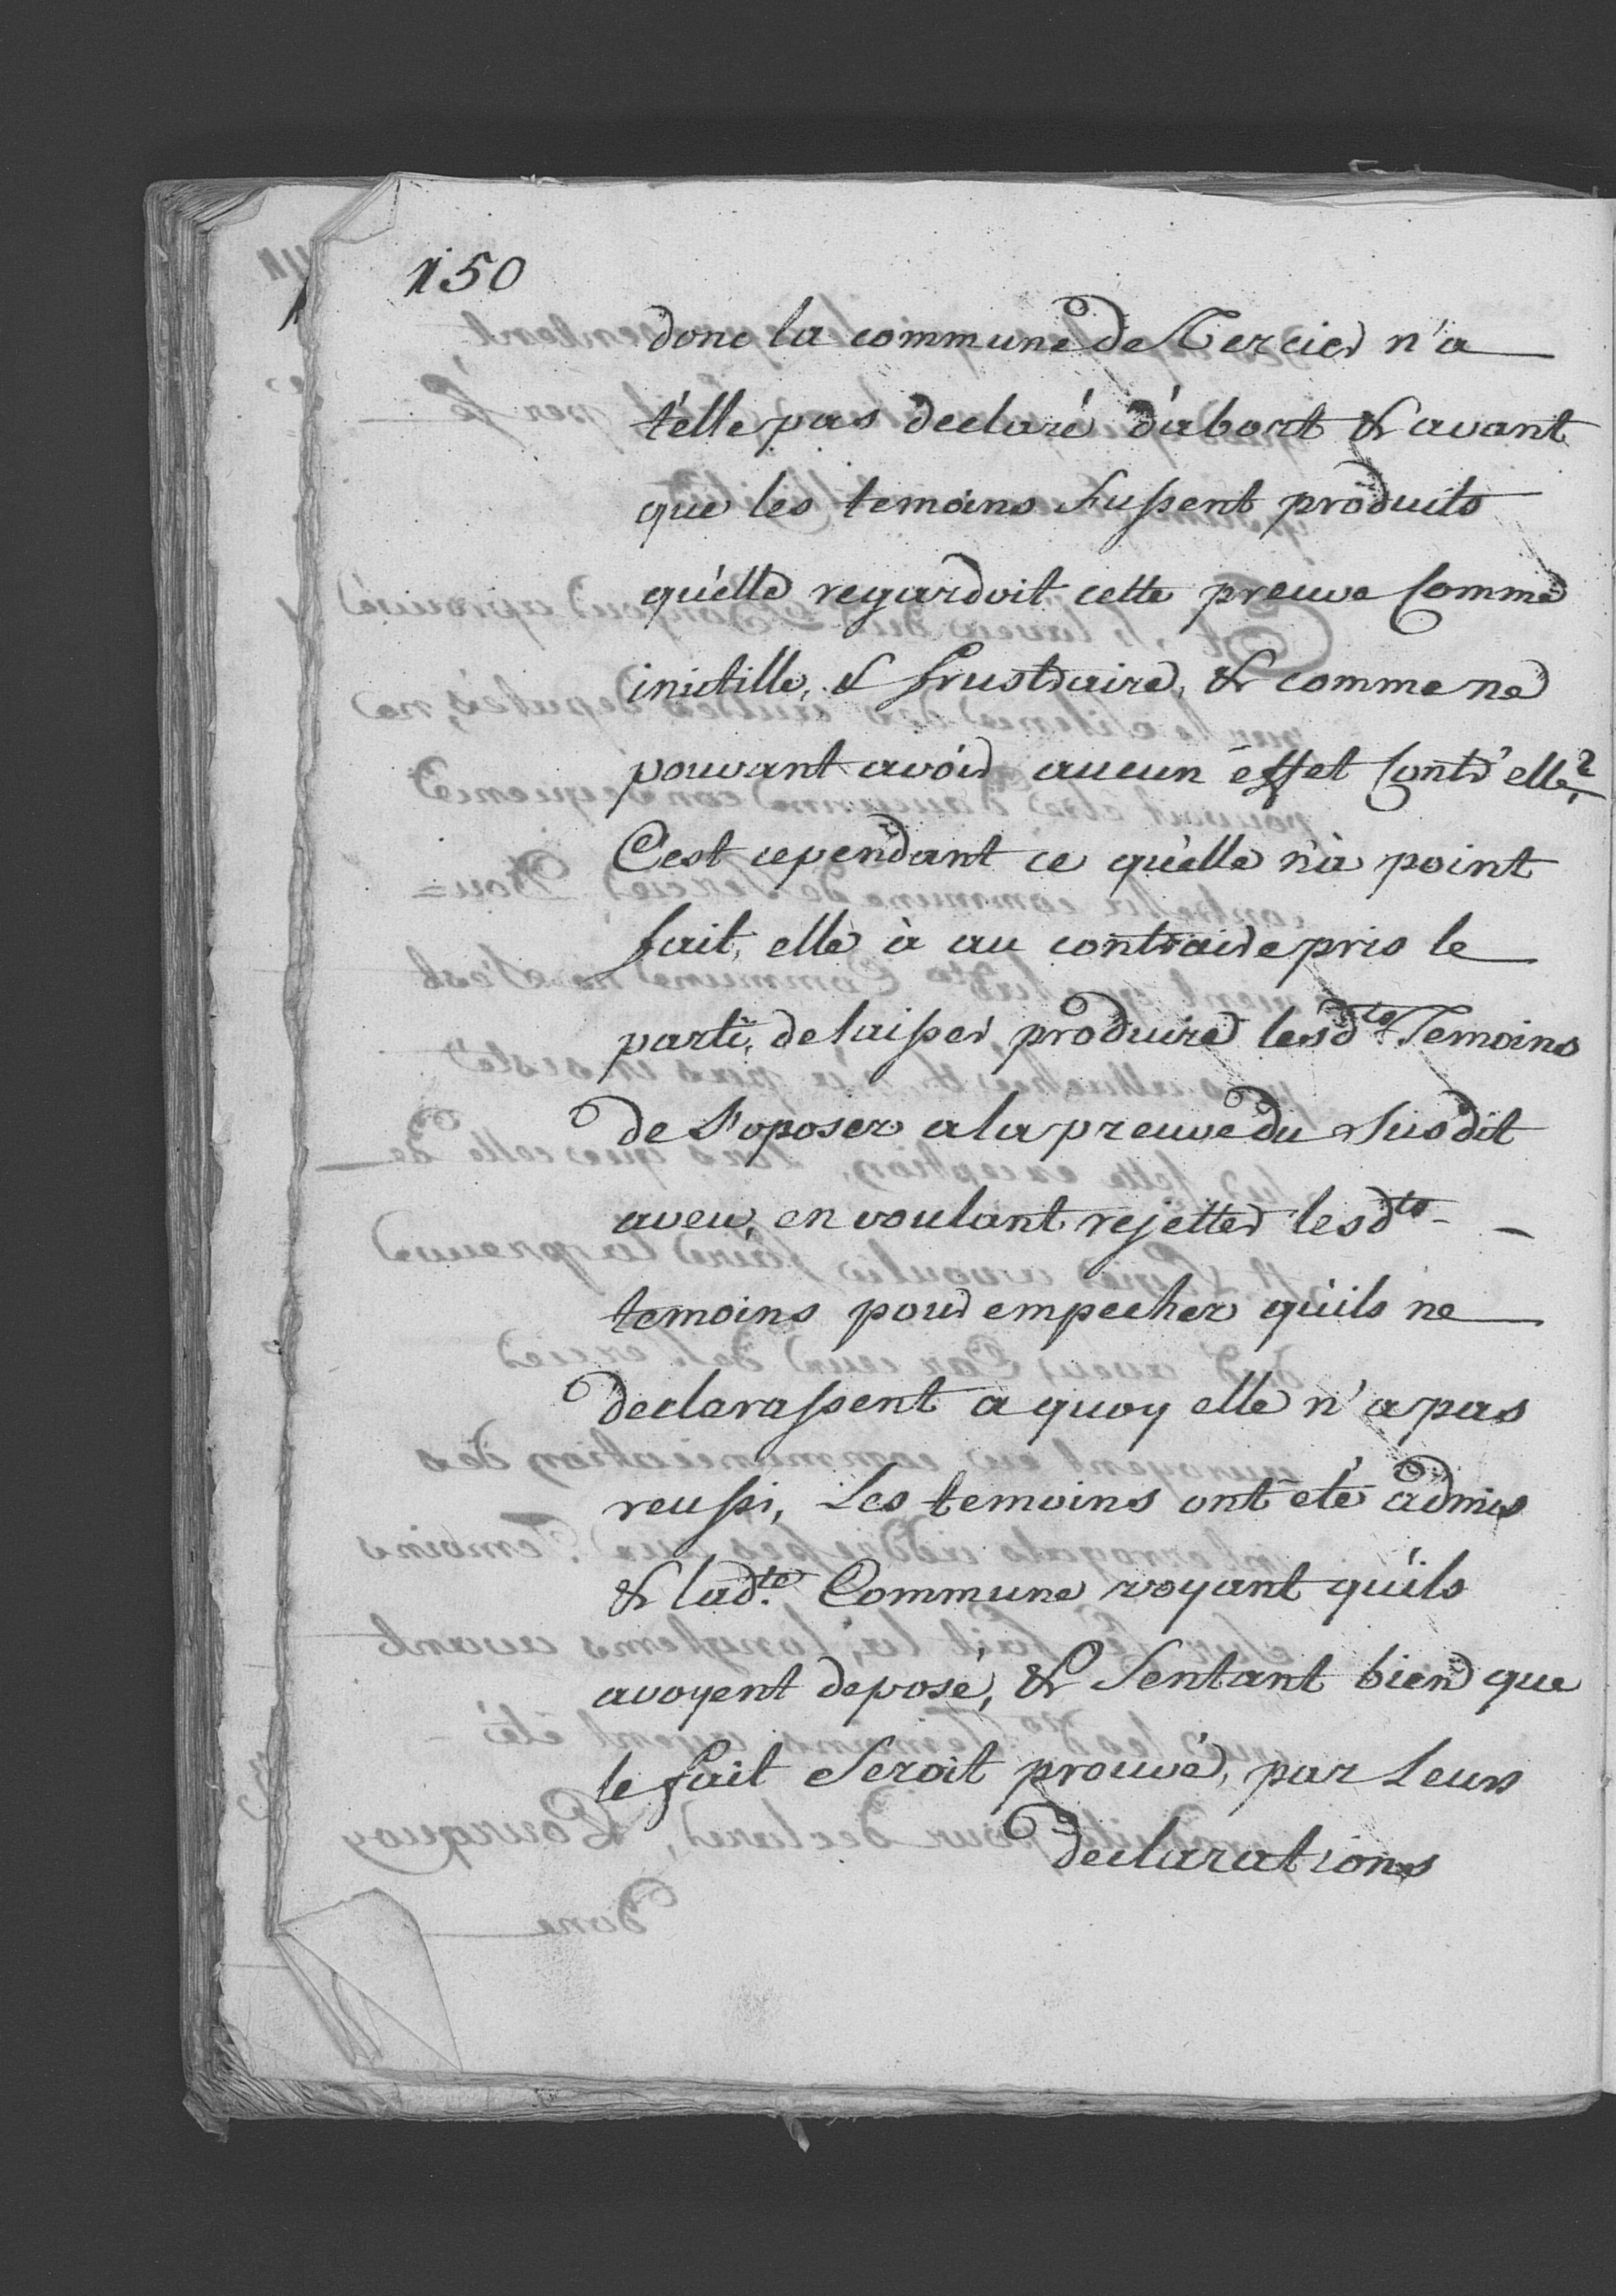 150
donc la commune de Tercier n'a
t'elle pas declaré d'abort & avant
que les temoins fussent produits
qu'elle regardoit cette preuve Comme
inutille, & frustraire, & comme ne
pouvant avoir aucun éffet Contr'elle?
C'est cependant ce qu'elle n'a point
fait, elle à au contraire pris le
parti, de laisser produire lesd.ts Temoins
de S'oposer a la preuve du Susdit
aveu, en voulant rejetter lesd.ts
temoins pour empecher qu'ils ne
declarassent a quoy elle n'a pas
reussi, Les temoins ont été admis
& lad.te Commune voyant qu'ils
avoyent deposé, & Sentant bien que
le fait Seroit prouvé, par Leurs
declarations